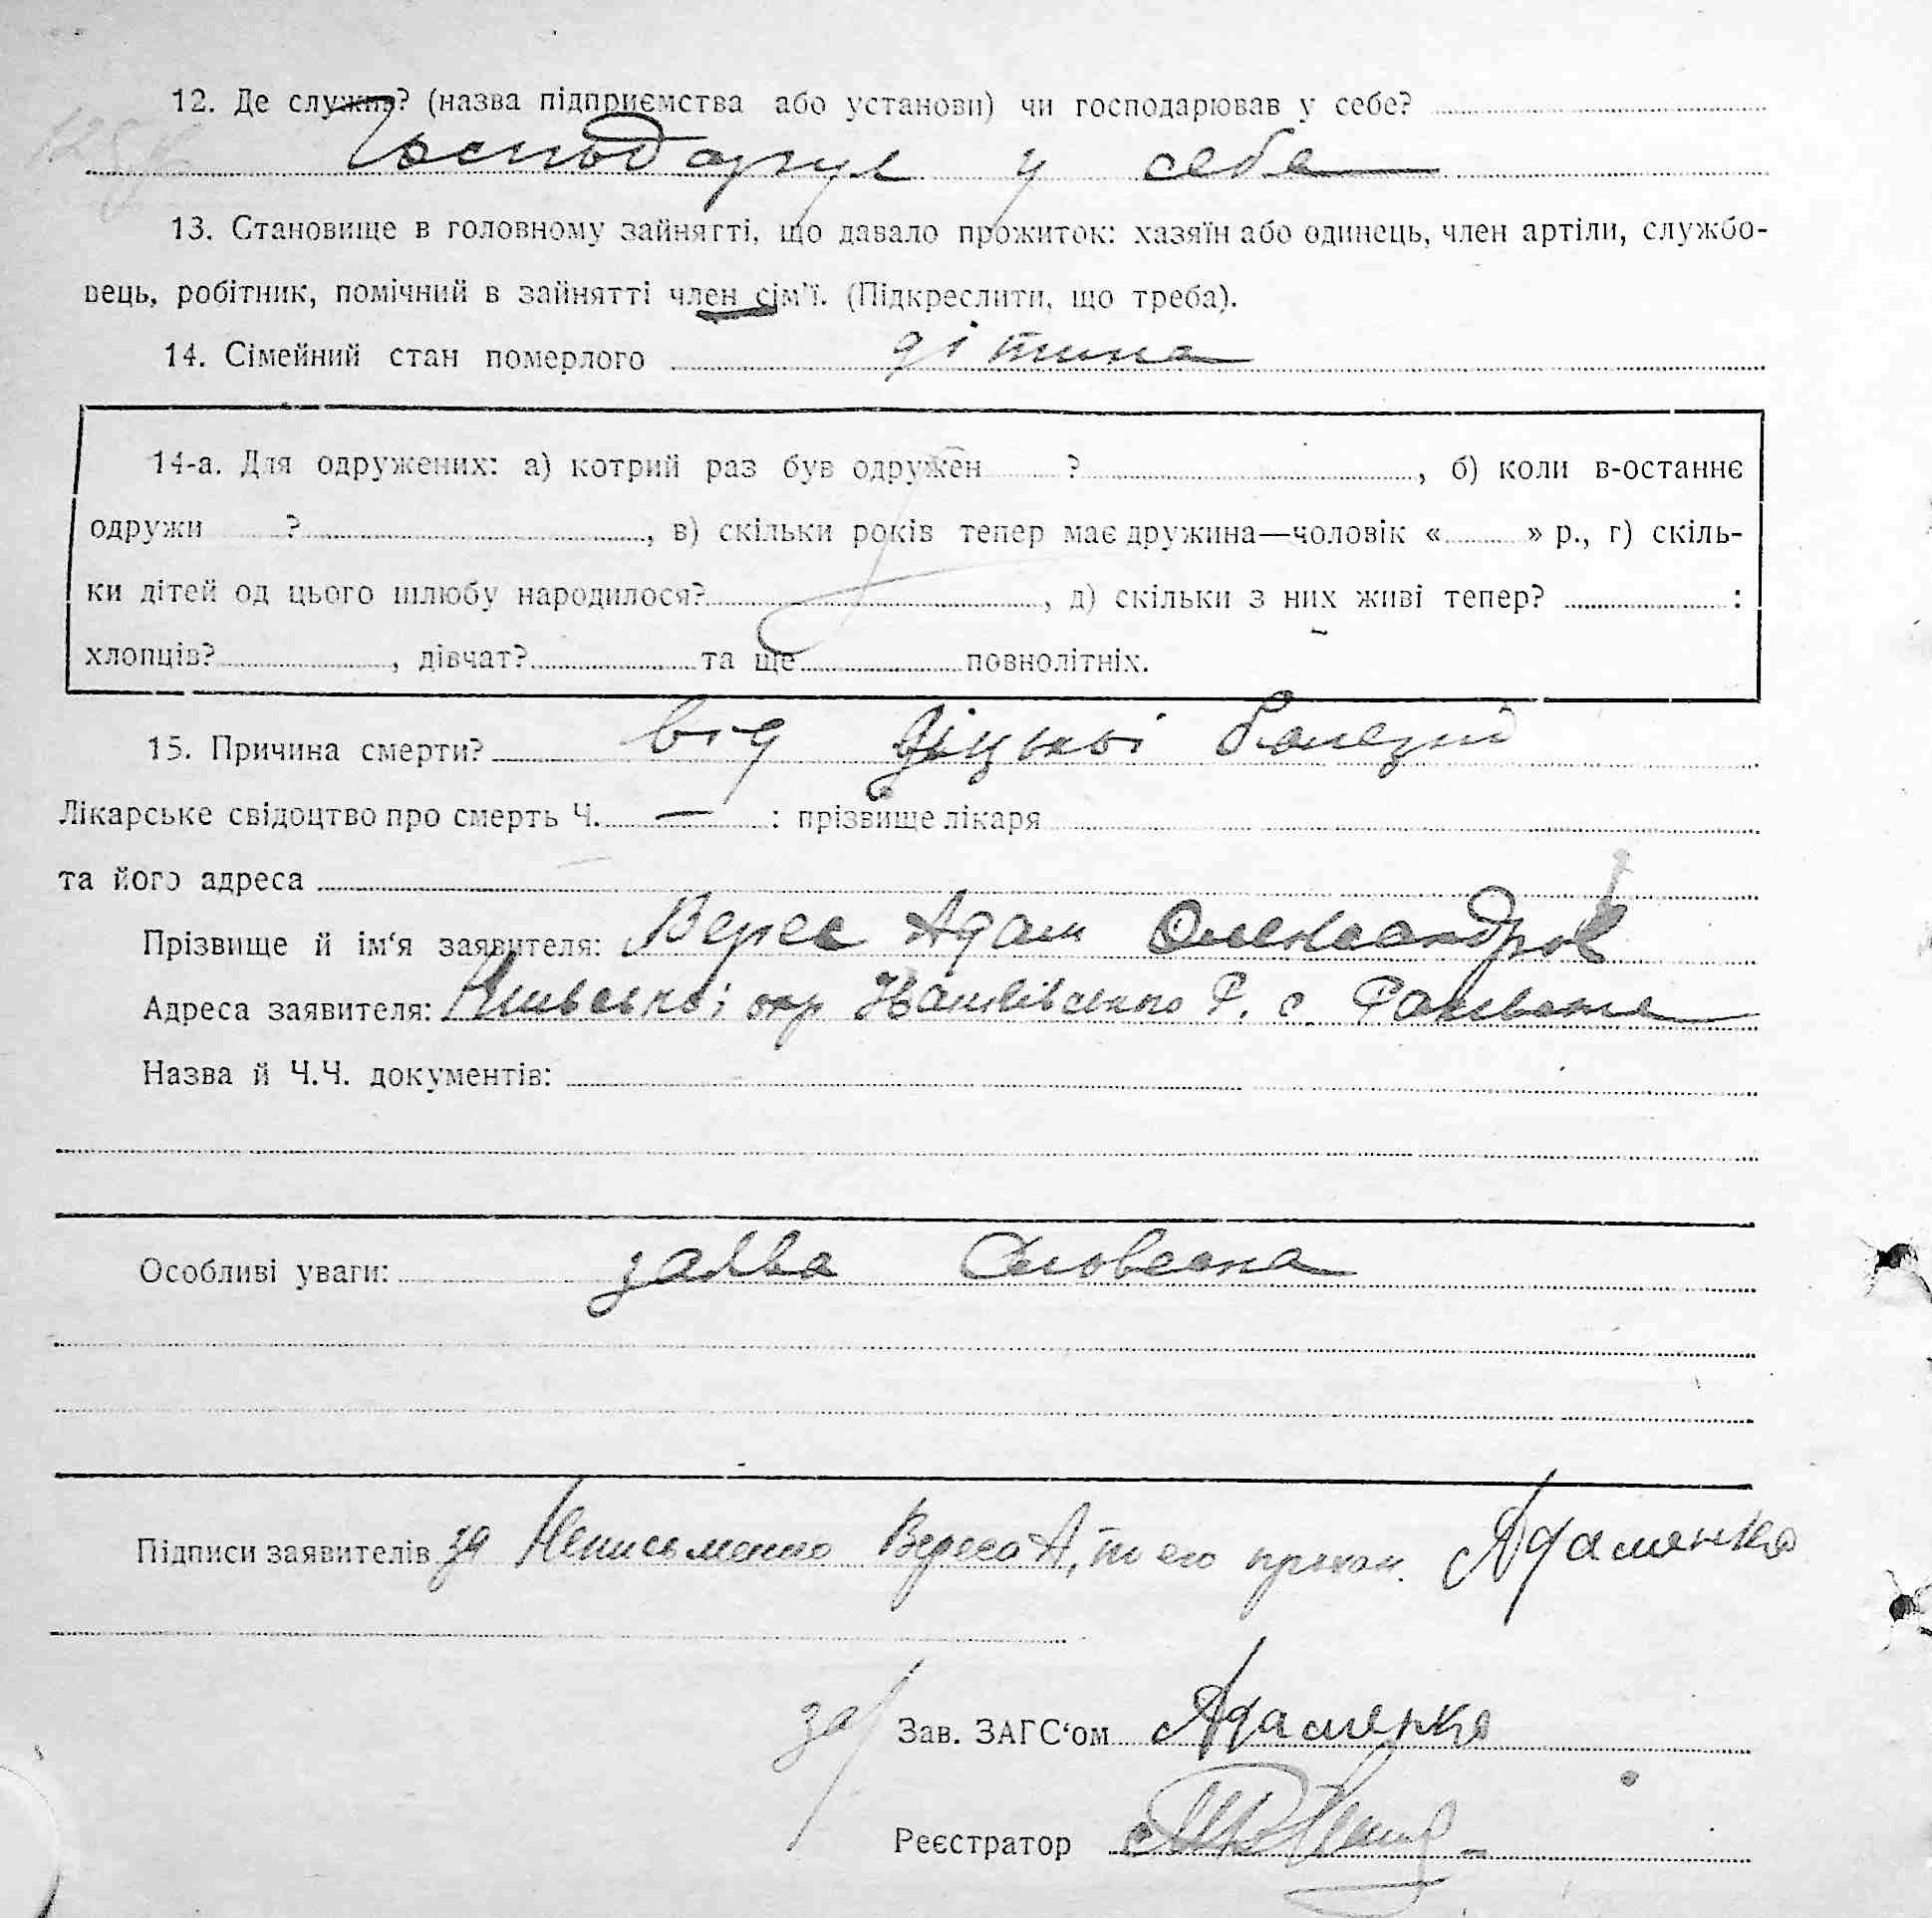 12. Де служив? (назва підприємства або установи) чи господарював у себе?
Господарує у себе
13. Становище в головному зайнятті, що давало прожиток: хазяїн або одинець, член артіли, службо-
вець, робітник, помічний в зайнятті член сім'ї. (Підкреслити, що треба).
14. Сімейний стан померлого дітина
14-а. Для одружених: а) котрий раз був одружен ? , б) коли в-останнє
одружи ? , в) скільки років тепер має дружина—чоловік « » р., г) скіль-
ки дітей од цього шлюбу народилося? , д) скільки з них живі тепер? :
хлопців? , дівчат? та ще повнолітніх.
15. Причина смерти? від
Лікарське свідоцтво про смерть Ч. — : прізвище лікаря
та його адреса
Прізвище й ім'я заявителя: Верес Адам Олександров
Адреса заявителя: окр Р. с.
Назва й Ч.Ч. документів:
Особливі уваги: заява Словесна
Підписи заявителів за Неписьменно Вереса А, Адаменко
за Зав. ЗАГС'ом Адаменко
Реєстратор